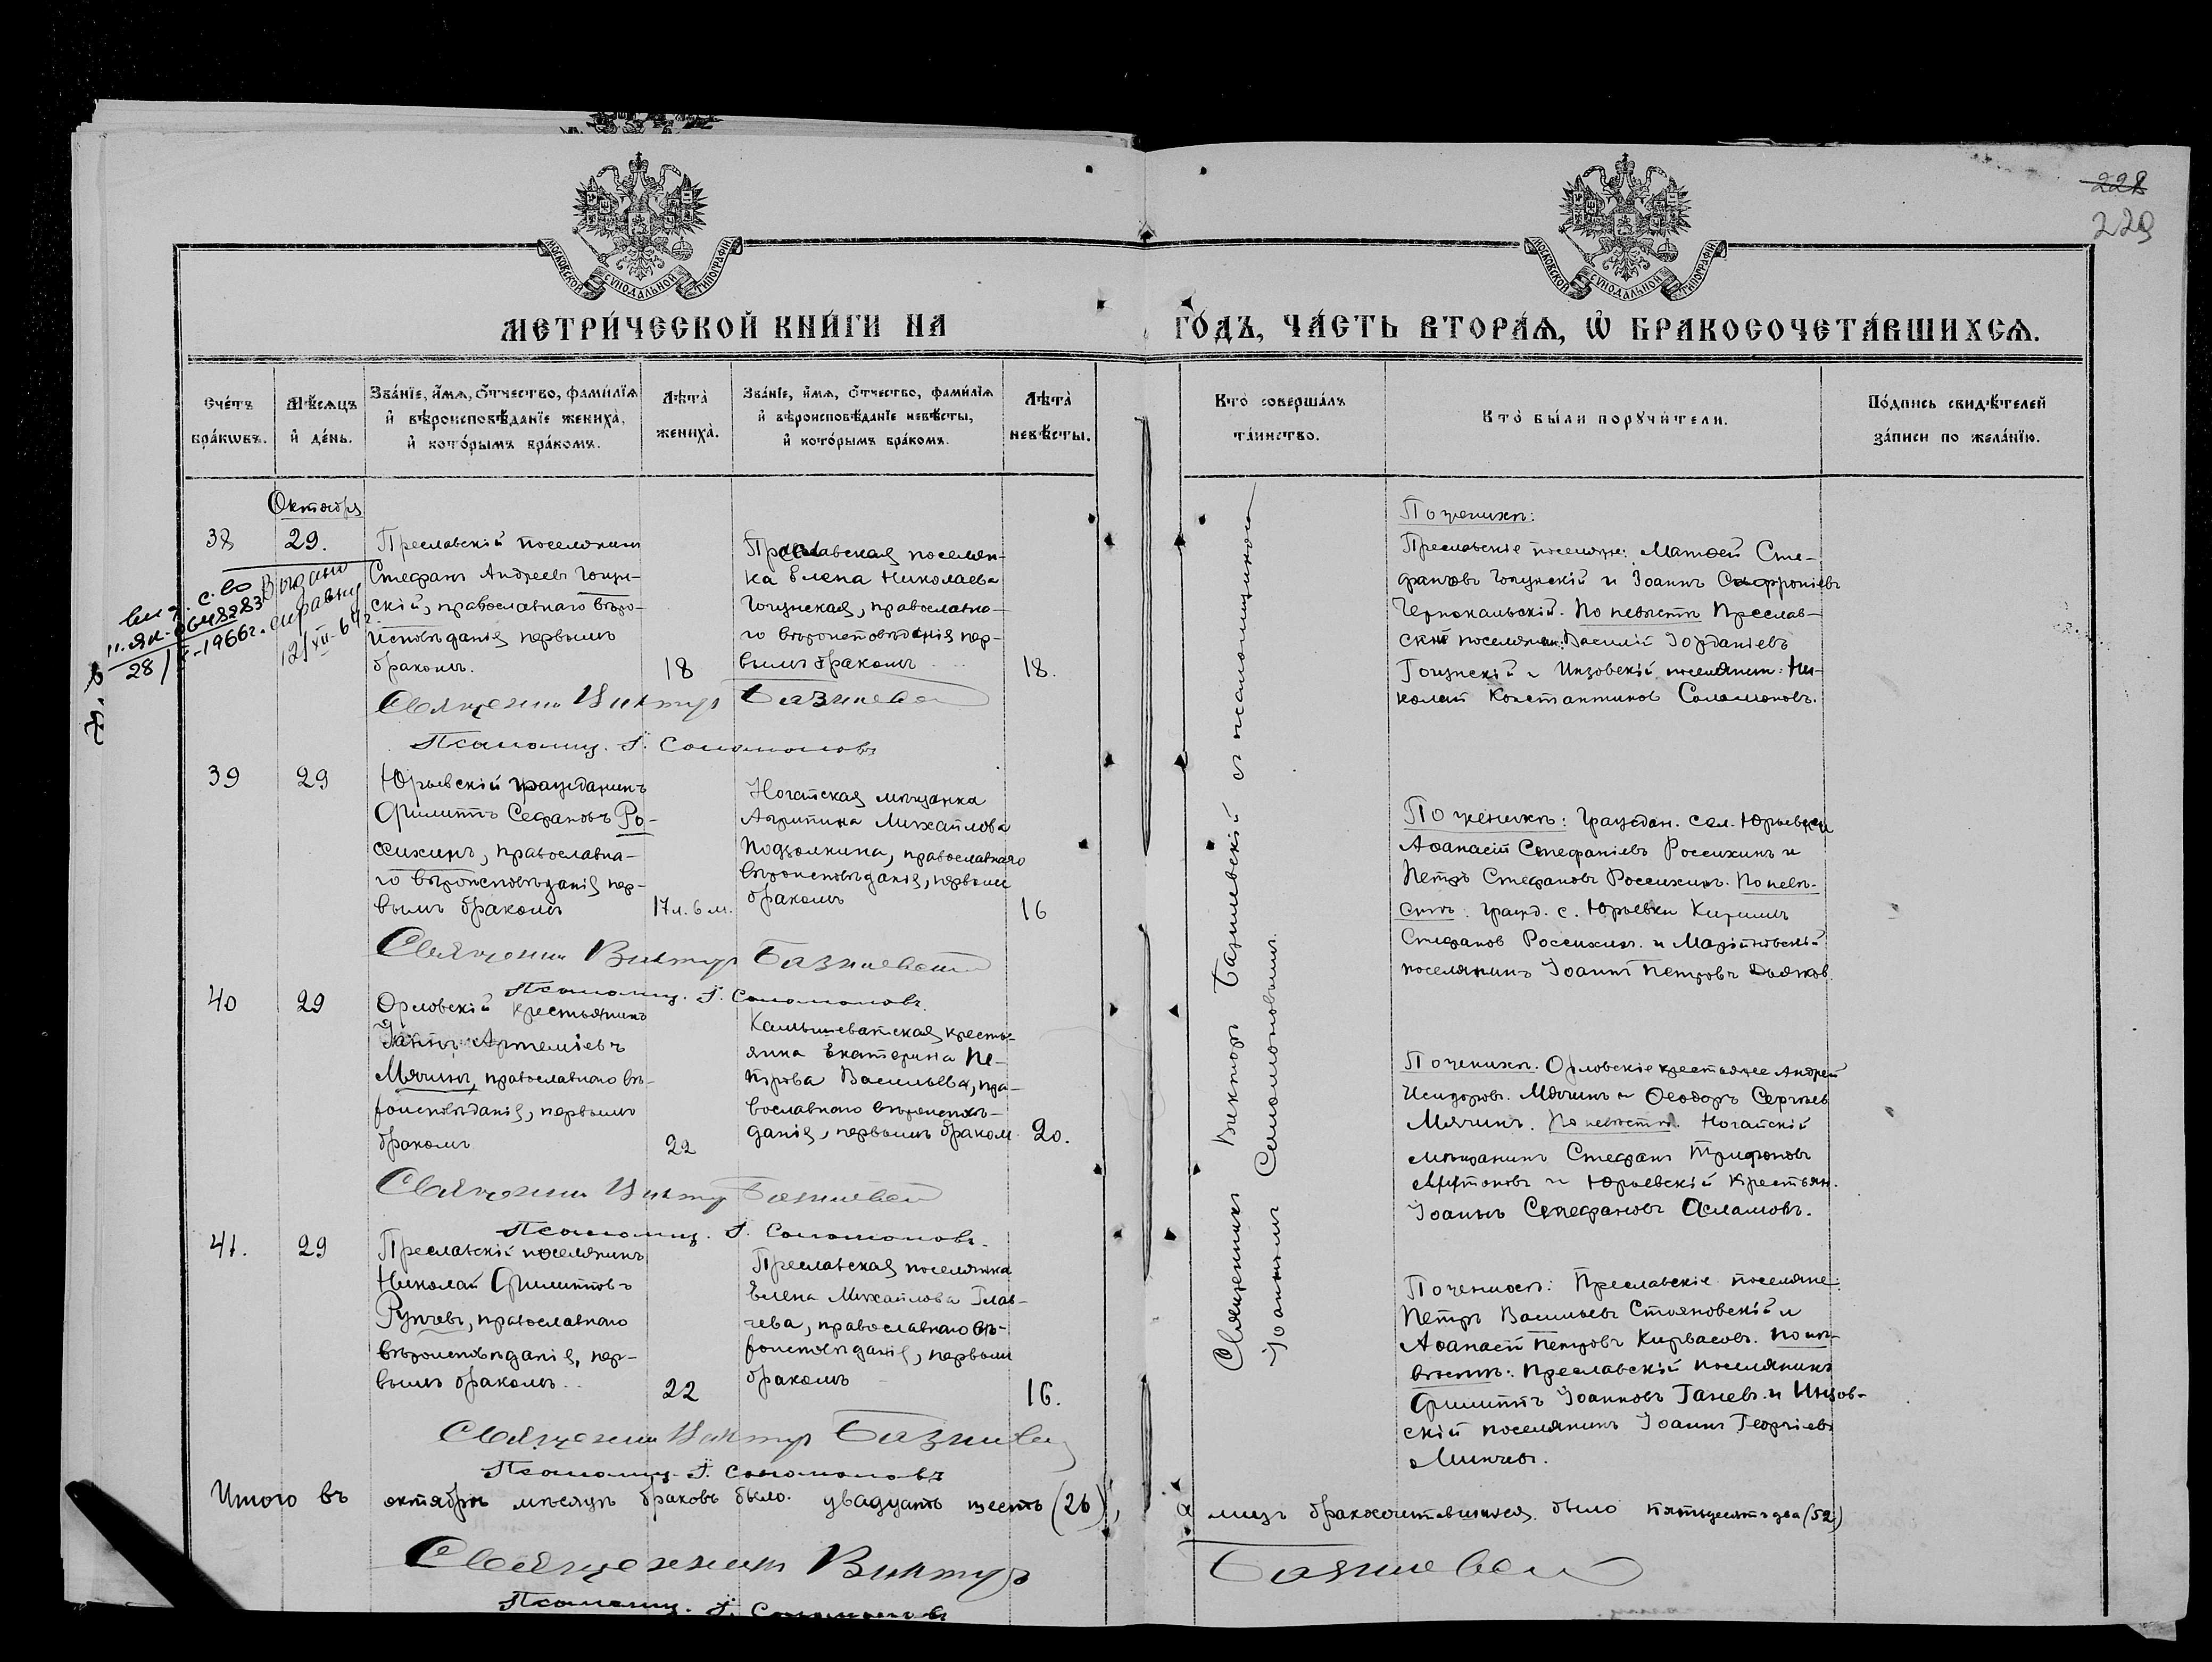 228
229
МОСКОВСКОЙ СѴНОДАЛЬНОЙ ТИПОГРАФІИ
МОСКОВСКОЙ СѴНОДАЛЬНОЙ ТИПОГРАФІИ
МЕТРИ́ЧЕСКОЙ КНИ́ГИ НА
ГО́ДЪ, ЧА́СТЬ ВТОРА́Ѧ, Ѡ БРАКОСОЧЕТА́ВШИХСѦ.
Сче́тъ бра́кѡвъ.
Мѣ́сѧцъ и҆ де́нь.
Зва́нїе, и҆́мѧ, ѻ҆́тчество, фами́лїѧ
и҆ вѣроисповѣ́данїе жениха̀,
и҆ кото́рымъ бра́комъ.
Лѣ́та жениха̀.
Зва́нїе, и҆́мѧ, ѻ҆́тчество, фами́лїѧ
и҆ вѣроисповѣ́данїе невѣ́сты,
и҆ кото́рымъ бра́комъ.
Лѣ́та невѣ́сты.
Кто̀ соверша́лъ
та́инство.
Кто̀ бы́ли порꙋчи́тели.
По́дпись свидѣ́телей
за́писи по жела́нїю.
Октября
38
29.
Преславскій поселянинъ
Стефанъ Андреевъ Гоцун-
скій, православнаго вѣро-
исповѣданія первымъ
бракомъ.
18
Преславская поселян-
ка Елена Николаева
Гоцунская, православна-
го вѣроисповѣданія пер-
вымъ бракомъ
18.
Выдано
справку
12/XII-69г.
28/X-1966г.
Священникъ Викторъ Базилевскій
Псаломщ. І. Соломоновъ
По женихѣ:
Преславскіе поселяне: Матѳей Сте-
фановъ Гоцунскій и Іоаннъ Софроніевъ
Чернокальскій. По невѣстѣ Преслав-
скій поселянин: Василій Іорданіевъ
Гоцунскій и Инзовскій поселянин: Ни-
колай Константинов Соломоновъ.
39
29
Юрьевскій гражданинъ
Филиппъ Сефановъ Ро-
ссихинъ, православна-
го вѣроисповѣданія пер-
вымъ бракомъ
17 л. 6 м.
Ногайская мѣщанка
Агрипина Михайлова
Подзолкина, православнаго
вѣроисповѣданія, первымъ
бракомъ
16
Священникъ Викторъ Базилевскій
Псаломщ. І. Соломоновъ.
По женихѣ: Граждан. сел. Юрьевки
Аѳанасій Стефаніевъ Россихинъ и
Петръ Стефановъ Россихинъ. По невѣ-
стѣ: гражд. с. Юрьевки Кириллъ
Стефанов Россихин. и
поселянинъ Іоаннъ Петровъ Дьяков.
40
29
Орловскій крестьянинъ
Іоаннъ Артеміевъ
Мячинъ, православнаго вѣ-
роисповѣданія, первымъ
бракомъ
22
Камышеватская кресть-
янка Екатерина Пе-
трова Васильева, пра-
вославнаго вѣроисповѣ-
данія, первымъ браком
20.
Священникъ Викторъ Базилевскій
Псаломщ. І. Соломоновъ.
По женихѣ. Орловскіе крестьяне Андрей
Исидоровъ Мячинъ и Ѳеодоръ Сергѣев
Мячинъ. По невѣстѣ. Ногайскій
мѣщанинъ Стефанъ Трифонов
и Юрьевскій крестьян.
Іоаннъ Стефановъ Асламовъ.
41.
29
Преславскій поселянинъ
Николай Филипповъ
Рупчев, православнаго
вѣроисповѣданія, пер-
вымъ бракомъ.
22
Преславская поселянка
Елена Михайлова Глав-
чева, православнаго вѣ-
роисповѣданія, первымъ
бракомъ
16.
Священникъ Викторъ Базилевскій
Псаломщ. І. Соломоновъ
По женихѣ: Преславскіе поселяне:
Петръ Васильевъ Стояновскій и
Аѳанасій Петровъ Кирвасовъ. По не-
вѣстѣ: Преславскій поселянинъ
Филиппъ Іоанновъ Ганев. и Инзов-
скій поселянинъ Іоаннъ Георгіевъ
Минчев.
Священникъ Викторъ Базилевскій съ псаломщикомъ
Іоанномъ Соломоновымъ.
Итого въ октябрѣ мѣсяцѣ браковъ было двадцать шесть (26), а лицъ бракосочетавшихся было пятьдесятъ два (52)
Священникъ Викторъ Базилевскій
Псаломщ. І. Соломоновъ